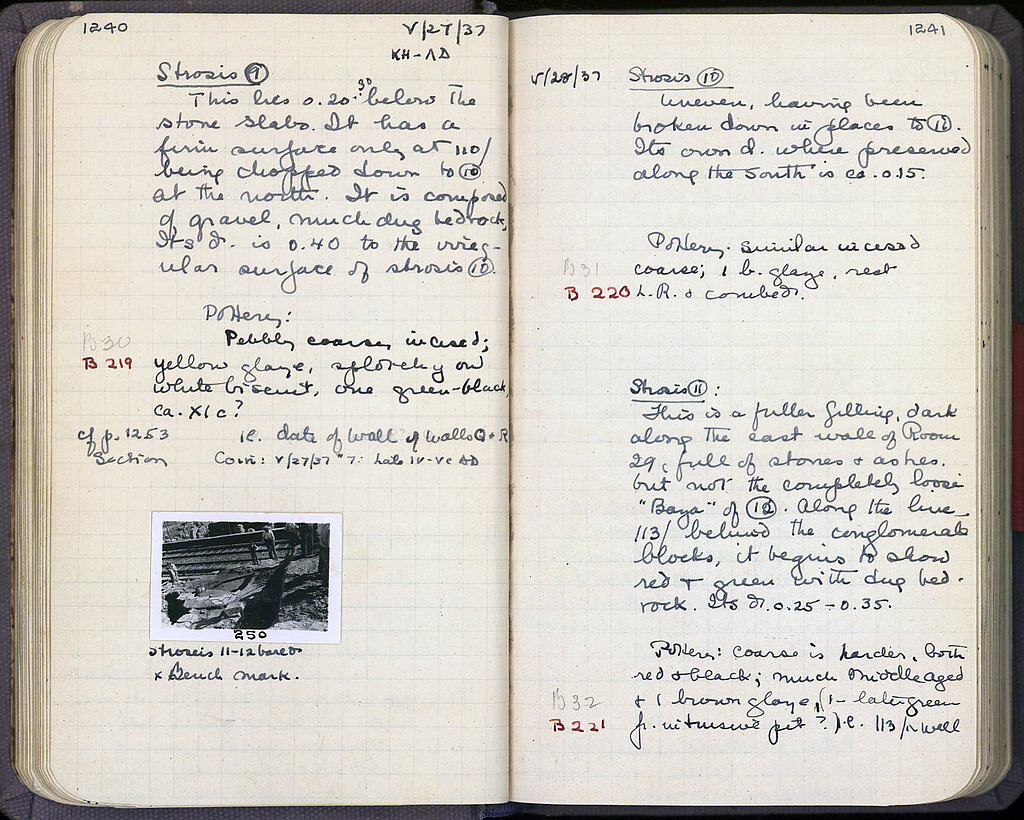 1240
V/27/37
KH-ΛD
Strosis 9
This lies 0.20-.30 below the
stone slabs. It has a
firm surface only at 110/
being chopped down to 10
at the north. It is composed
of gravel, much dug bedrock,
Its d. is 0.40 to the irreg-
ular surface of strosis 10.
Pottery:
B30
Pebbly coarse, incised;
B 219
yellow glaze, splotchy on
white biscuit, one green-black,
ca. XI c?
cf p. 1253
Section
ie. date of wall of walls Q + R
Coin: V/27/37 #7: Late IV-V c AD
250
stroseis 11-12 bared
x Bench mark.
1241
V/28/37
Strosis 10
Uneven, having been
broken down in places to 11.
Its own d. where preserved
along the South is ca. 0.15.
Pottery: similar incised
B31
coarse; 1 b. glaze, rest
B 220
L.R. & combed.
Strosis 11:
This is a fuller filling, dark
along the east wall of Room
29, full of stones & ashes.
but not the completely loose
of 12. Along the line
113/ behind the conglomerate
blocks, it begins to show
red + green with dug bed-
rock. Its d. 0.25-0.35.
Pottery: coarse is harder, both
red & black; much Middle aged
B32
+ 1 brown glaze, (1- later green
B 221
fr. intrusive pit?) i.e. 113/ well